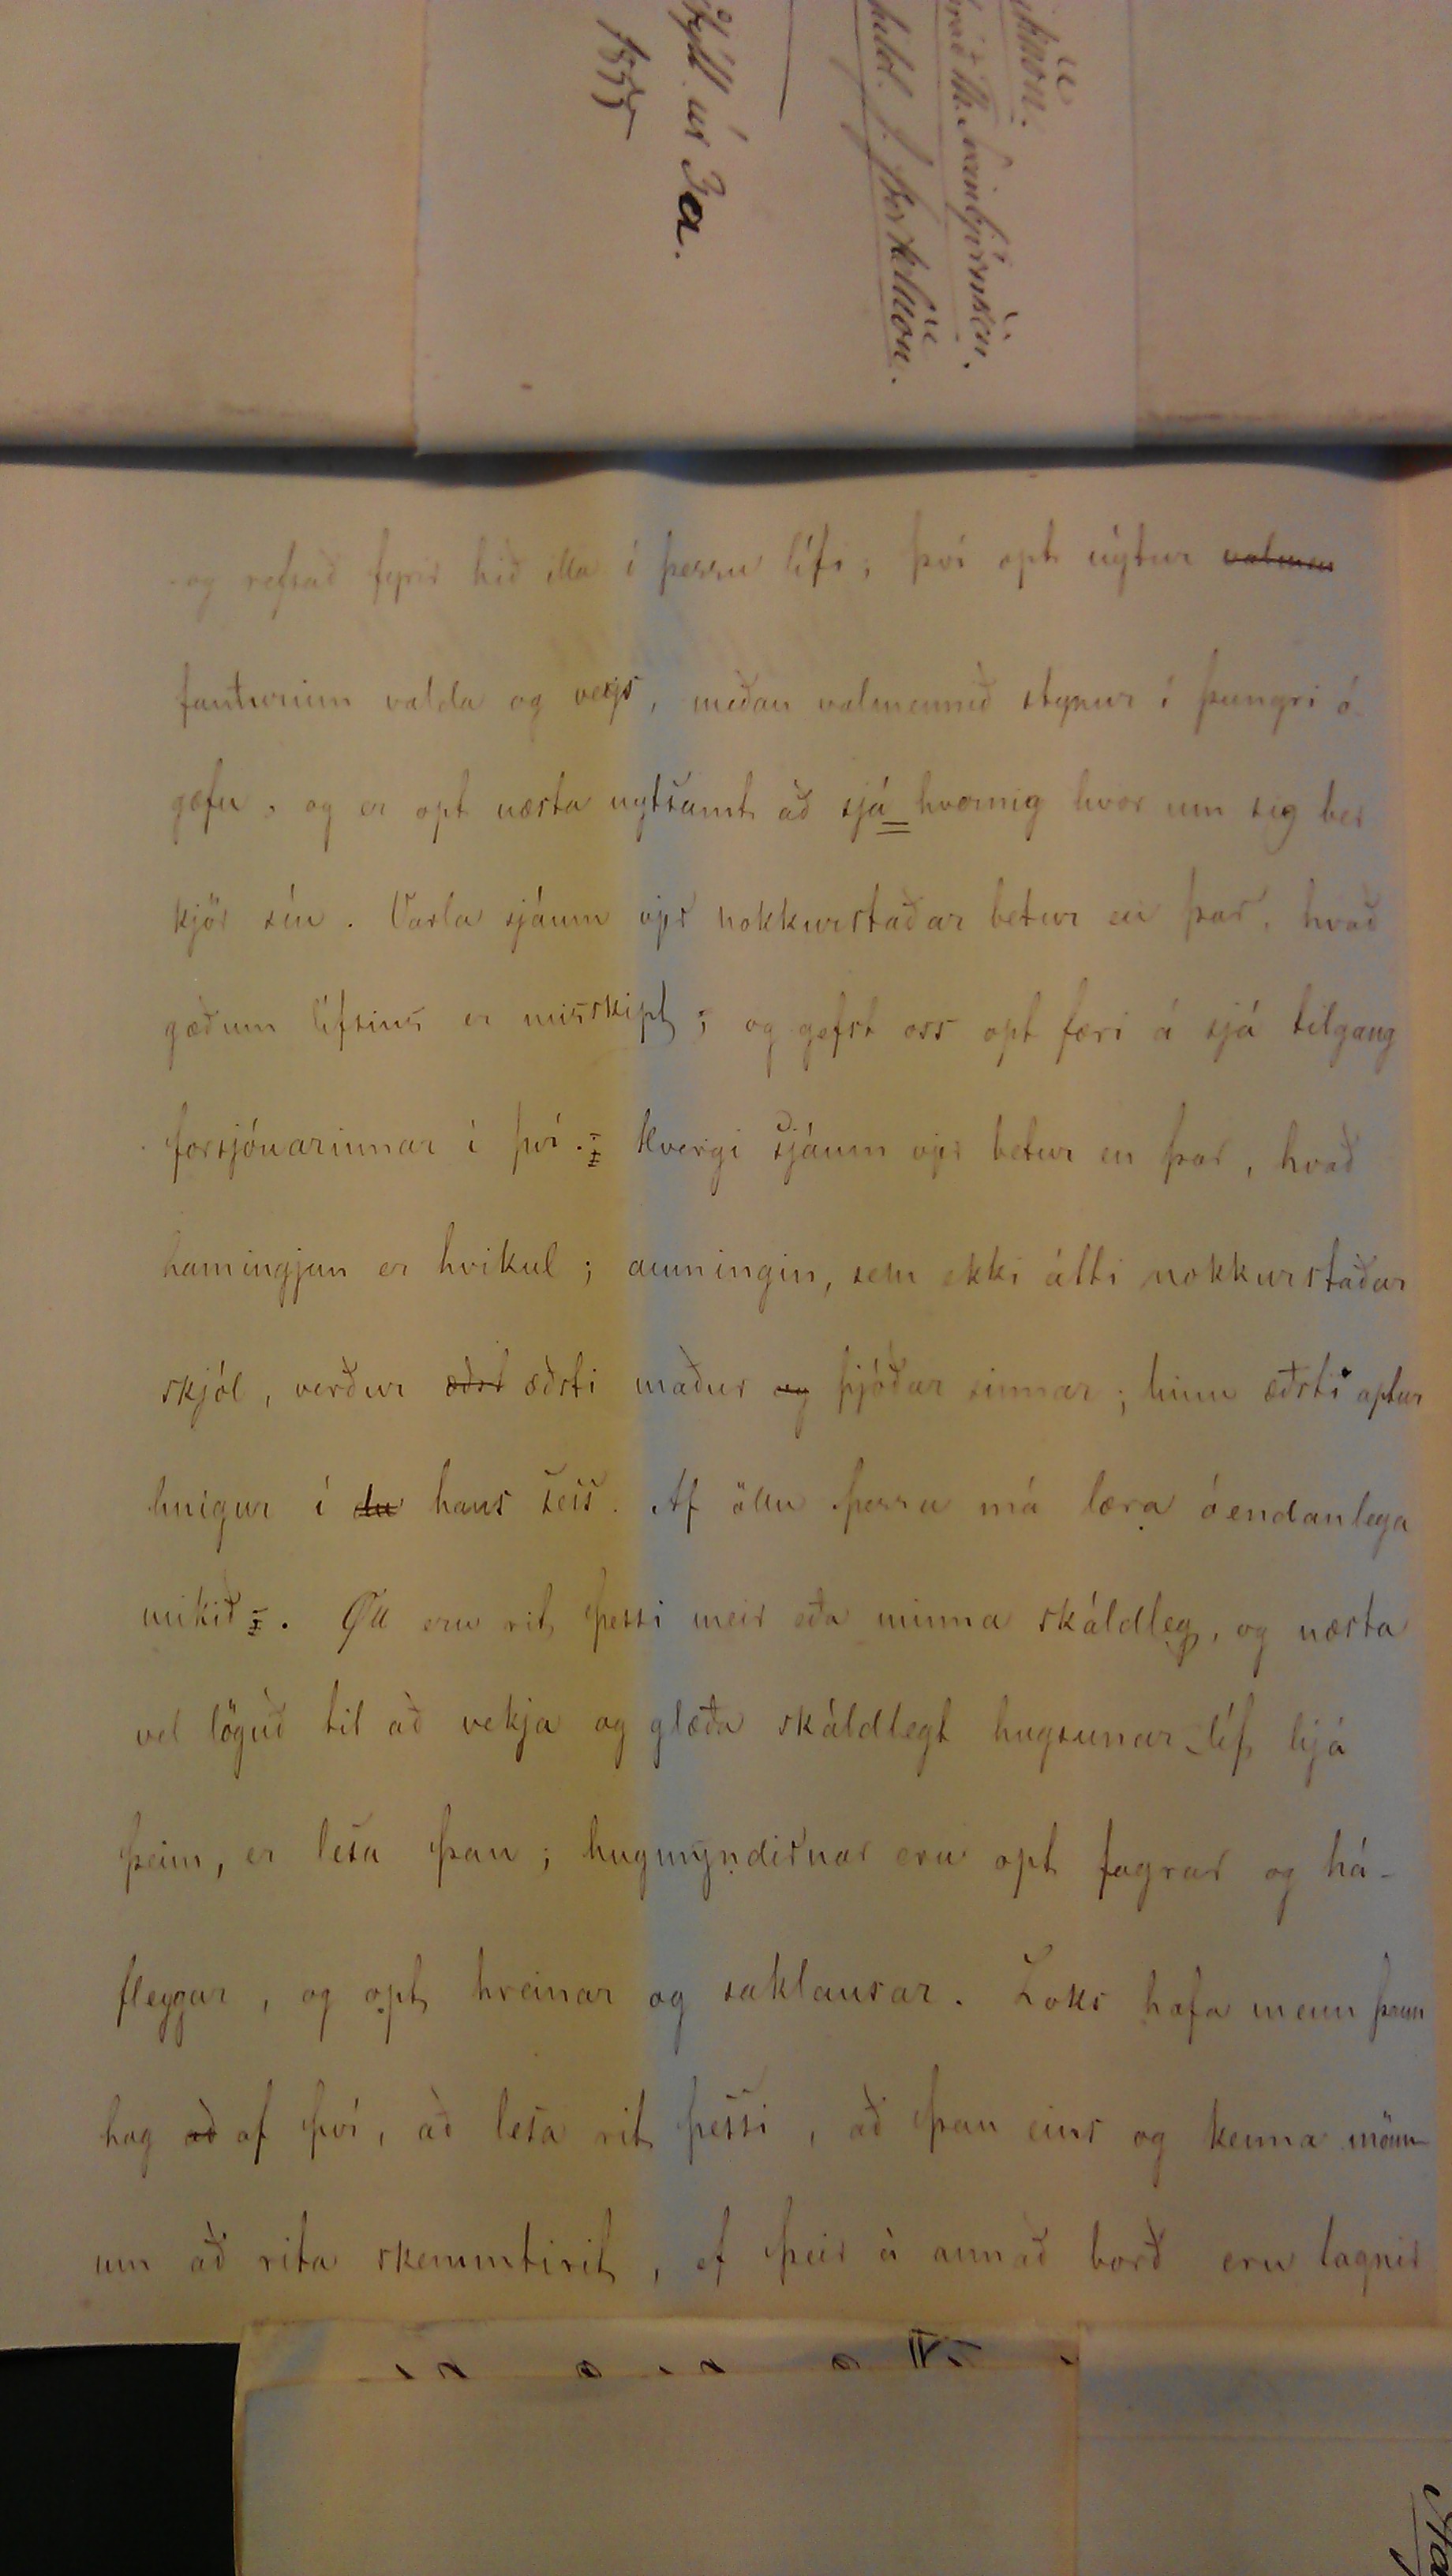 og refsað fyrir hið illa í þessu lífi; því opt nýtur valmen
fanturinn valda og vegs, meðan valmennið stynur í þungri ó-
gæfu, og er opt næsta nytsamt að sjá hvernig hvor um sig ber
kjör sín. Varla sjáum vjer nokkurstaðar betur en þar, hvað
gæðum lífsins er misskipt; og gefst oss opt færi á sjá tilgang
forsjónarinnar í því. Hvergi sjáum vjer betur en þar, hvað
hamingjan er hvikul; aumingin, sem ekki átti nokkurstaðar
skjól, verður æðst æðsti maður og þjóðar sinnar; hinn æðsti aptur
hnígur í hans sess. Af öllu þessu má læra óendanlega
mikið. Öll eru rit þessi meir eða minna skáldleg, og næsta
vel löguð til að vekja og glæða skáldlegt hugsunar-líf hjá
þeim, er lesa þau; hugmyndirnar eru opt fagrar og há-
fleygar, og opt hreinar og saklausar. Loks hafa menn þann
hag að af því, að lesa rit þessi, að þau eins og kenna mönn-
um að rita skemmtirit, ef þeir á annað borð eru lagnir